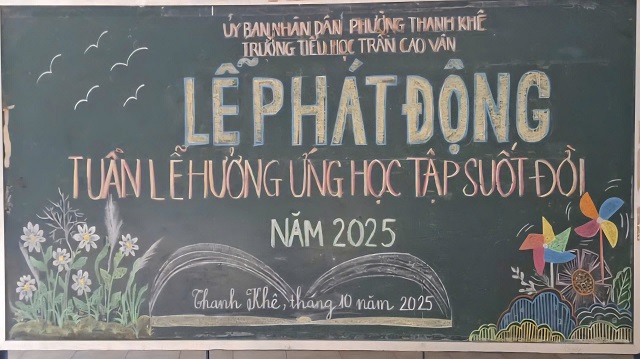 ỦY BAN NHÂN DÂN PHƯỜNG THANH KHÊ
TRƯỜNG TIỂU HỌC TRẦN CAO VÂN
LỄ PHÁT ĐỘNG
TUẦN LỄ HƯỞNG ỨNG HỌC TẬP SUỐT ĐỜI
NĂM 2025
Thanh Khê, tháng 10 năm 2025